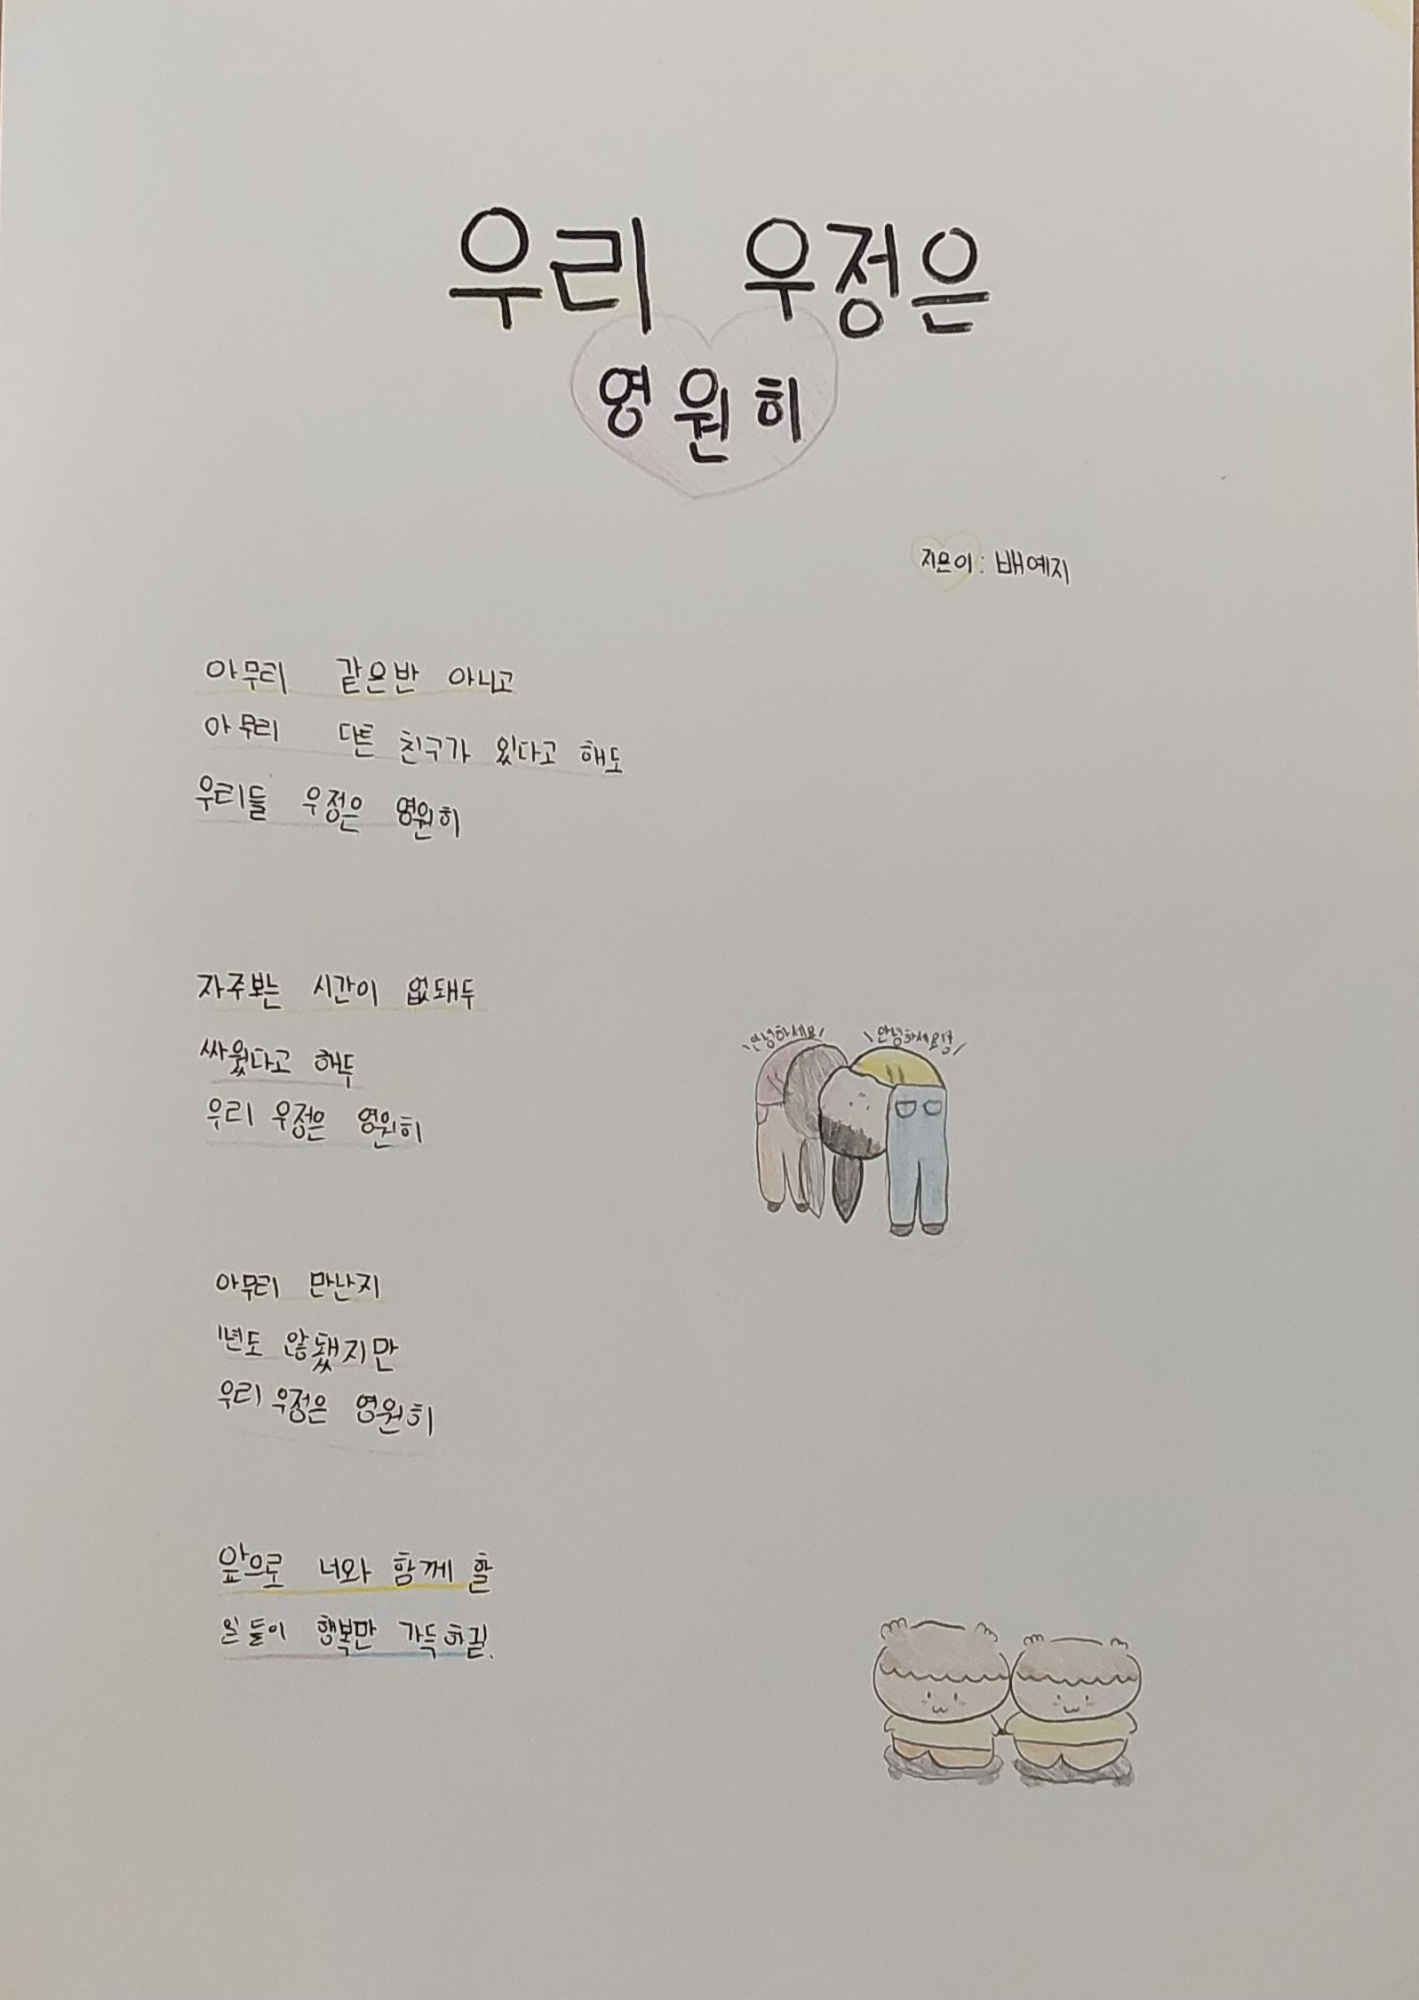 우리 우정은
영원히
지은이: 배예지
아무리 같은반 아니고
아무리 다른 친구가 있다고 해도
우리들 우정은 영원히
자주보는 시간이 없돼두
싸웠다고 해두
우리 우정은 영원히
안녕하세요
안녕하세요넝
아무리 만난지
1년도 않됐지만
우리 우정은 영원히
앞으로 너와 함께 할
일들이 행복만 가득하길.